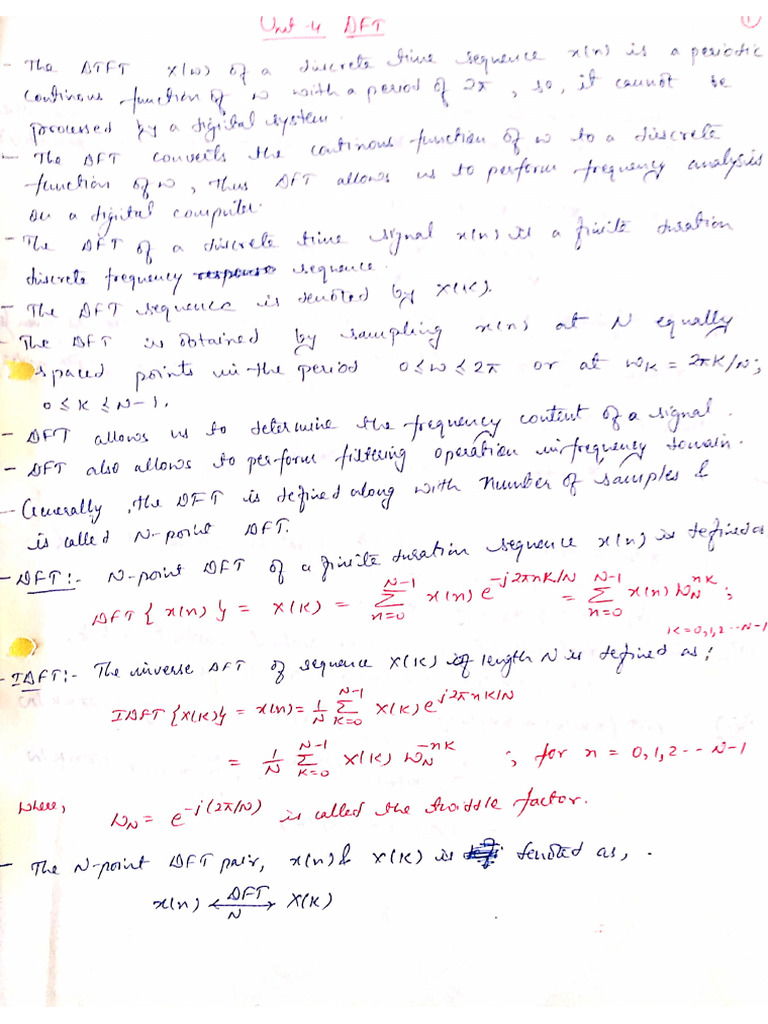 Unit-4 DFT
1
- The DTFT X(ω) of a discrete time sequence x(n) is a periodic
continous function of ω with a period of 2π, so, it cannot be
processed by a digital system.
- The DFT converts the continous function of ω to a discrete
function of ω, thus DFT allows us to perform frequency analysis
on a digital computer.
- The DFT of a discrete time signal x(n) is a finite duration
discrete frequency response sequence.
- The DFT sequence is denoted by X(K).
- The DFT is obtained by sampling x(n) at N equally
spaced points in the period 0≤ω≤2π or at ωK = 2πK/N;
0≤K≤N-1.
- DFT allows us to determine the frequency content of a signal.
- DFT also allows to perform filtering operation in frequency domain.
- Generally, the DFT is defined along with Number of samples &
is called N-point DFT.
- DFT:- N-point DFT of a finite duration sequence x(n) is defined as
DFT{x(n)} = X(K) = Σ_{n=0}^{N-1} x(n) e^{-j2πnK/N} = Σ_{n=0}^{N-1} x(n) W_N^{nK} ;
K=0,1,2--N-1
- IDFT:- The inverse DFT of sequence X(K) of length N is defined as;
IDFT{X(K)} = x(n) = 1/N Σ_{K=0}^{N-1} X(K) e^{j2πnK/N}
= 1/N Σ_{K=0}^{N-1} X(K) W_N^{-nK} ; for n = 0,1,2--N-1
where, W_N = e^{-j(2π/N)} is called the twiddle factor.
- The N-point DFT pair, x(n) & X(K) is denoted as,.
x(n) <--DFT/N--> X(K)